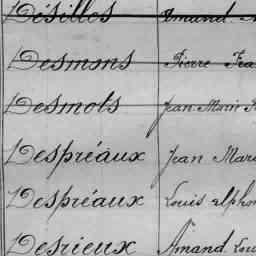 Désilles Amand
Desmons Pierre
Desmots Jean Marie
Despréaux Jean Mari
Despréaux Louis Alpho
Desrieux Amand Lou